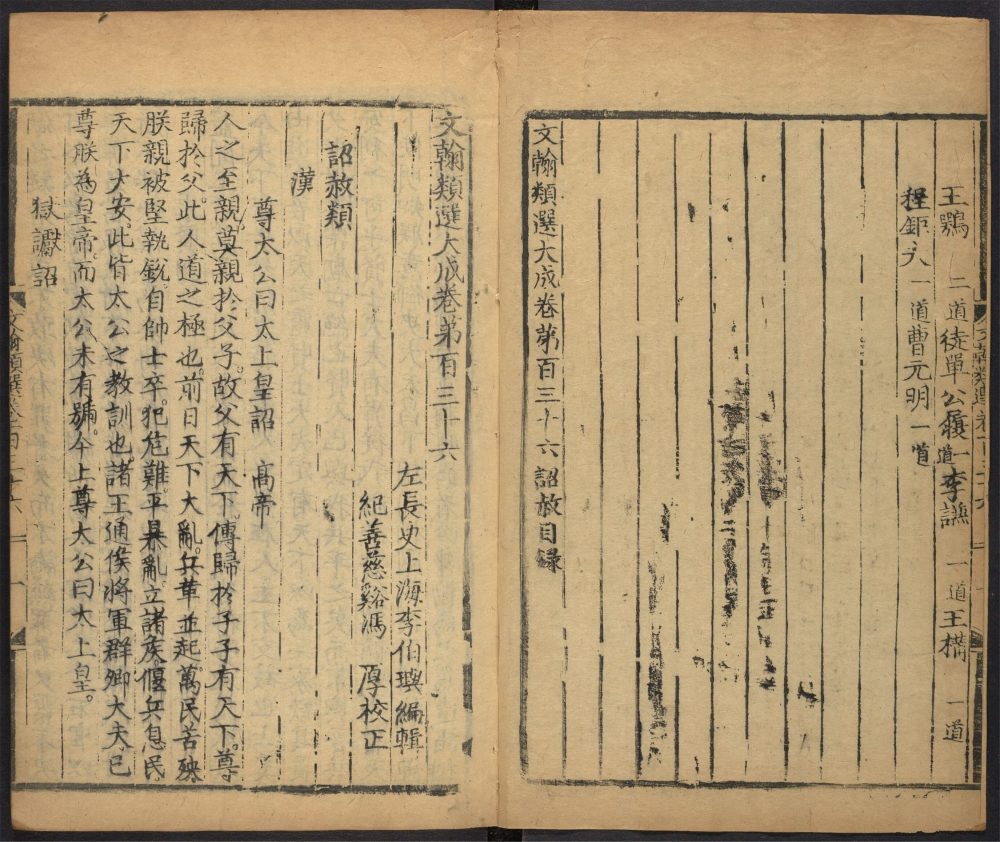 王鶚 二道徒單公履一道李謙 一道王構 一道
程鉅夫 一道曹元明一道
文翰類選大成卷第百三十六詔赦目錄
文翰類選大成卷第百三十六
左長史上海李伯璵編輯
紀善慈谿馮 厚校正
詔赦類
漢
尊太公曰太上皇詔 高帝
人之至親莫親於父子故父有天下傳歸於子子有天下尊
歸於父此人道之極也前日天下大亂兵革並起萬民苦殃
朕親被堅執銳自帥士卒犯危難平暴亂立諸侯偃兵息民
天下大安此皆太公之教訓也諸王通侯將軍群卿大夫已
尊朕為皇帝而太公未有號今上尊太公曰太上皇
獄讞詔